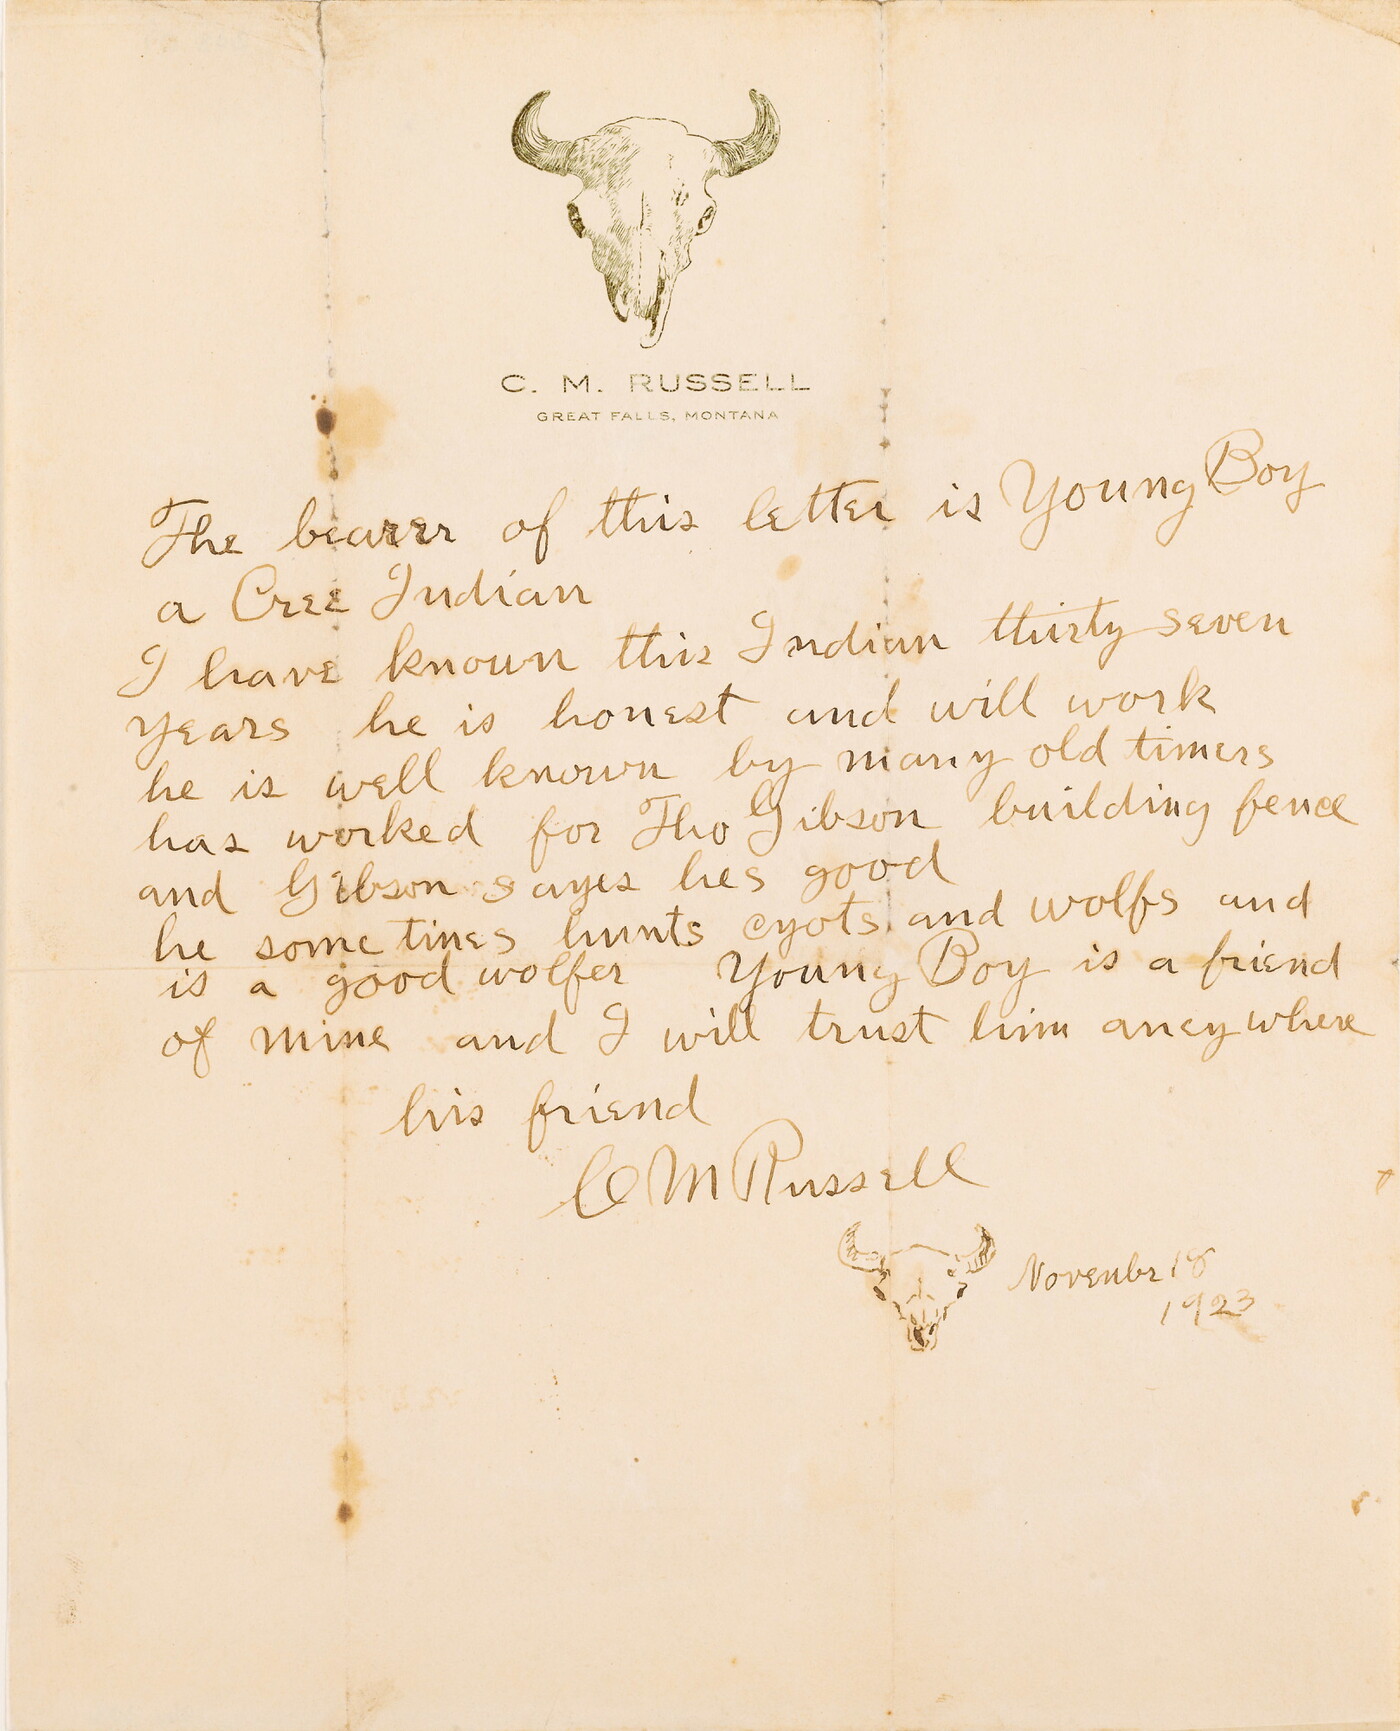 C. M. RUSSELL
GREAT FALLS, MONTANA
The bearer of this letter is Young Boy
a Cree Indian
I have known this Indian thirty seven
years he is honest and will work
he is well known by many old timers
has worked for Tho Gibson building fence
and Gibson sayes hes good
he some times hunts cyots and wolfs and
is a good wolfer Young Boy is a friend
of mine and I will trust him aneywhere
his friend
C M Russell
Novenbr 18
1923